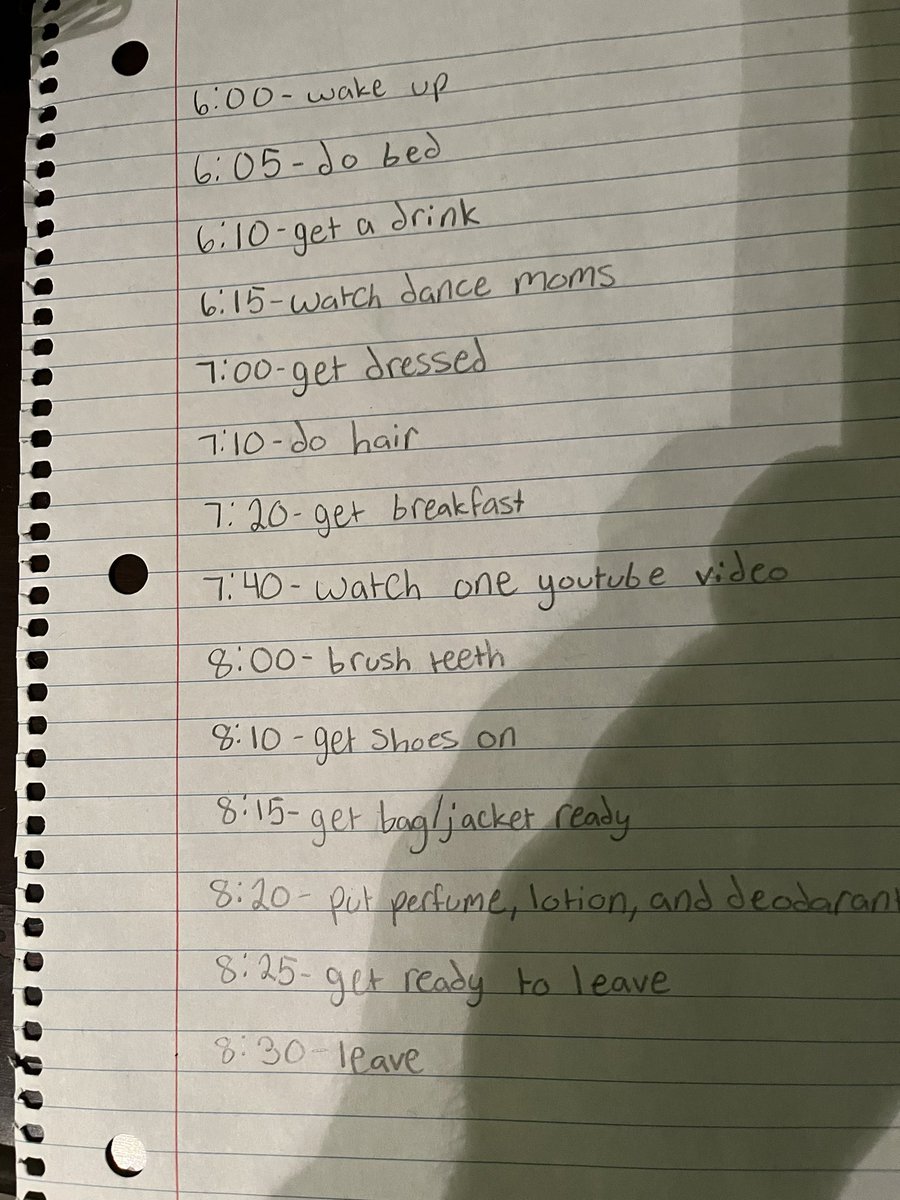 6:00-wake up
6:05-do bed
6:10-get a drink
6:15-watch dance moms
7:00-get dressed
7:10-do hair
7:20-get breakfast
7:40-watch one youtube video
8:00-brush teeth
8:10-get shoes on
8:15-get bag/jacket ready
8:20-put perfume, lotion, and deodarant
8:25-get ready to leave
8:30-leave